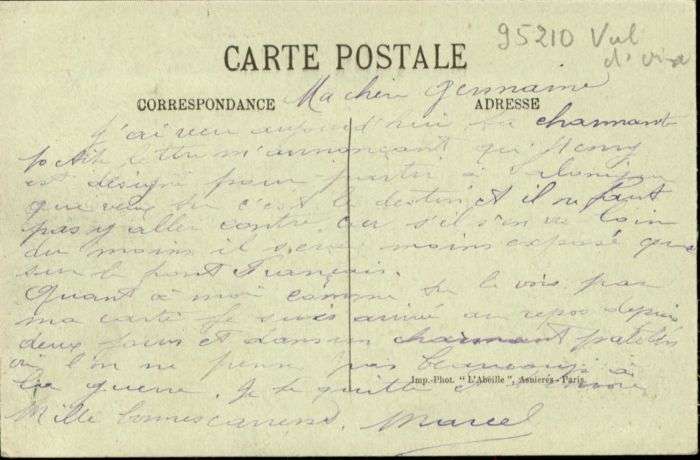 95210 Val
d'oise
CARTE POSTALE
CORRESPONDANCE
ADRESSE
Ma chère Germaine
J'ai reçu aujourd'hui ta charmante
petite lettre m'annonçant qu'Henry
est désigné pour partir à
que veux tu c'est le destin et il ne faut
pas y aller contre. Car s'il s'en va loin
du moins il sera moins exposé que
sur le front Français.
Quant à moi comme tu le vois par
ma carte je suis arrivé au repos depuis
deux jours et dans un charmant patelin
l'on ne pense pas beaucoup à
la guerre. Je te quitte
Mille bonnes caresses. Marcel
Imp.-Phot. "L'Abeille", Asnières-Paris.